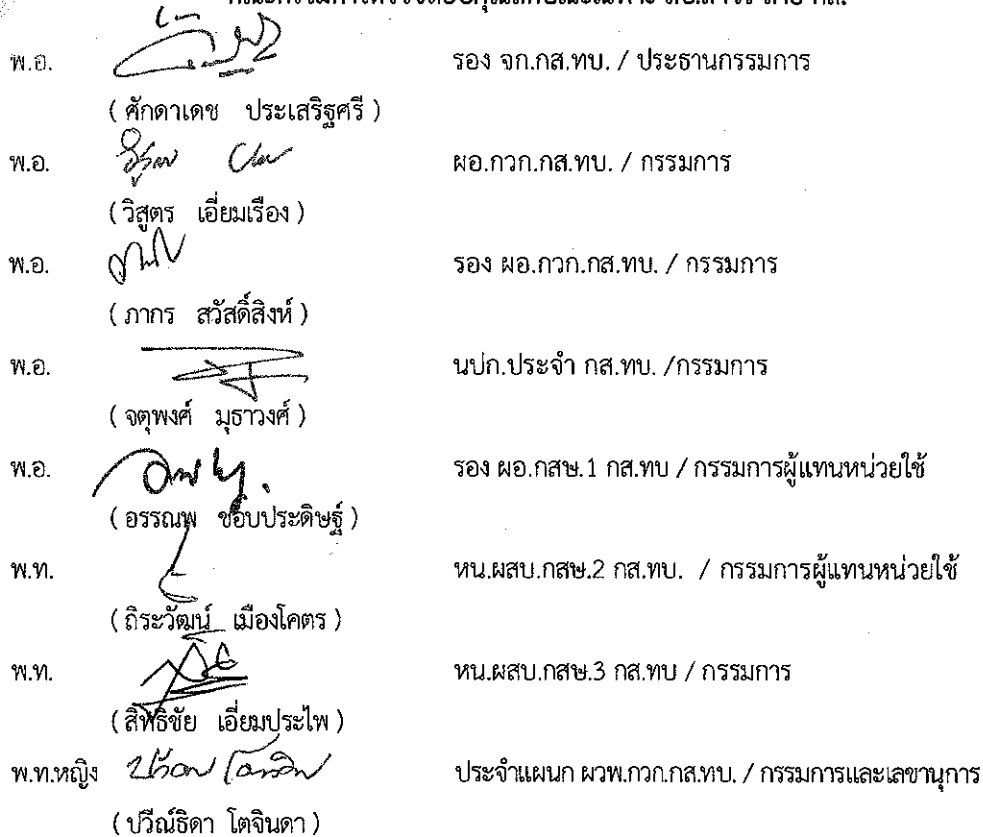 พ.อ. รอง จก.กส.ทบ. / ประธานกรรมการ
( ศักดาเดช ประเสริฐศรี )
พ.อ. ผอ.กวก.กส.ทบ. / กรรมการ
( วิสูตร เอี่ยมเรือง )
พ.อ. รอง ผอ.กวก.กส.ทบ. / กรรมการ
( ภากร สวัสดิ์สิงห์ )
พ.อ. นปก.ประจำ กส.ทบ. /กรรมการ
( จตุพงศ์ มุธาวงศ์ )
พ.อ. รอง ผอ.กสษ.1 กส.ทบ / กรรมการผู้แทนหน่วยใช้
( อรรณพ ชอบประดิษฐ์ )
พ.ท. หน.ผสบ.กสษ.2 กส.ทบ. / กรรมการผู้แทนหน่วยใช้
( ถิระวัฒน์ เมืองโคตร )
พ.ท. หน.ผสบ.กสษ.3 กส.ทบ / กรรมการ
( สิทธิชัย เอี่ยมประไพ )
พ.ท.หญิง ประจำแผนก ผวพ.กวก.กส.ทบ. / กรรมการและเลขานุการ
( ปวีณ์ธิดา โตจินดา )